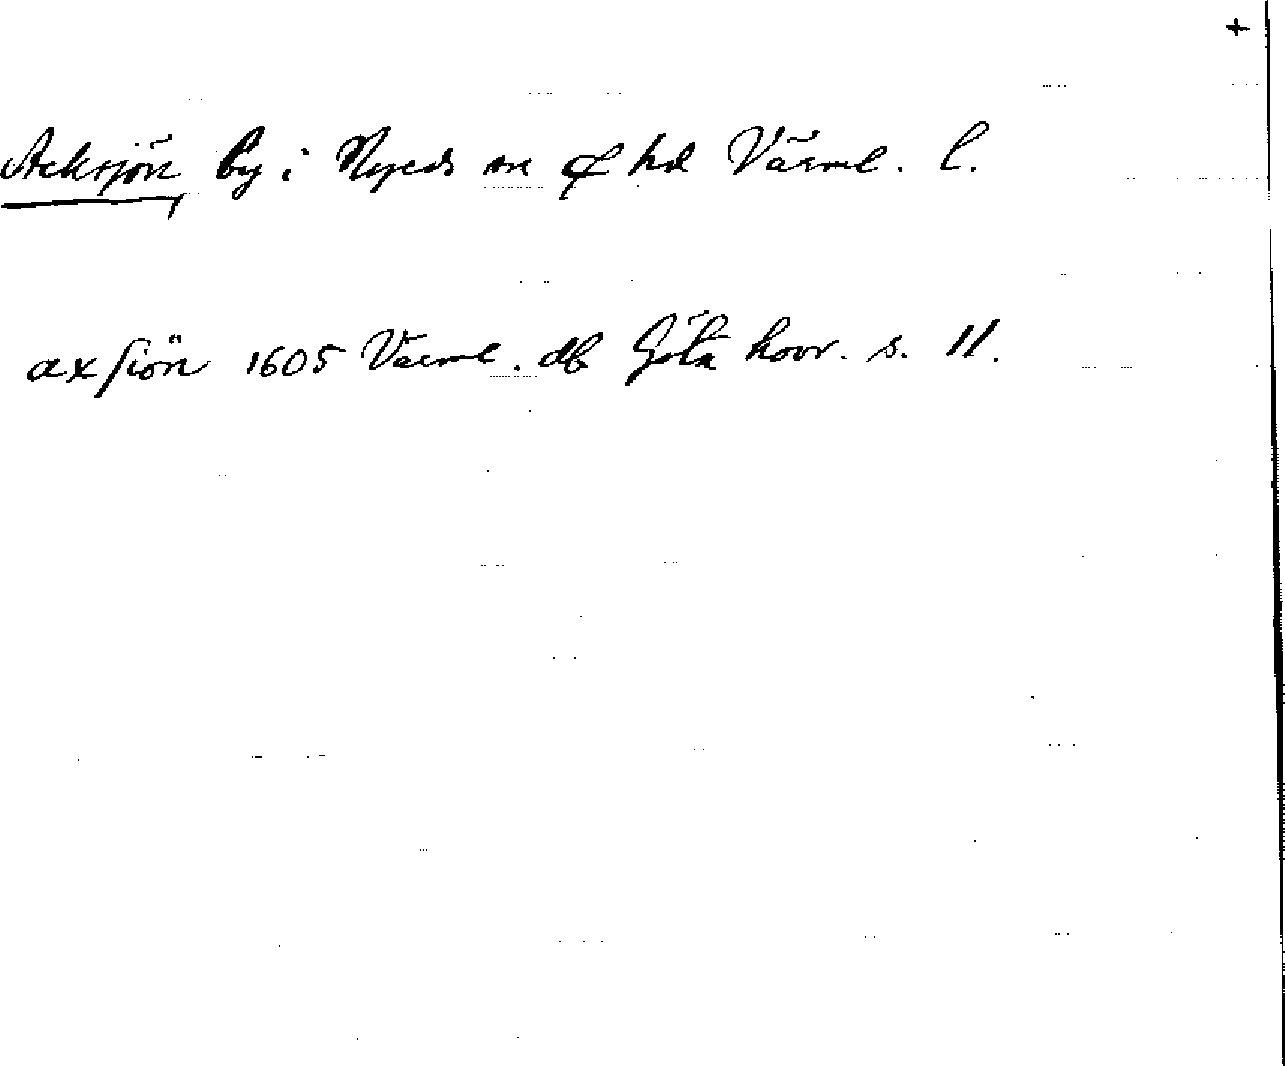 +
Acksjön, by i Nyeds sn och hd Värml. l.
axsiön 1605 Värml. db Göta hovr. s. 11.